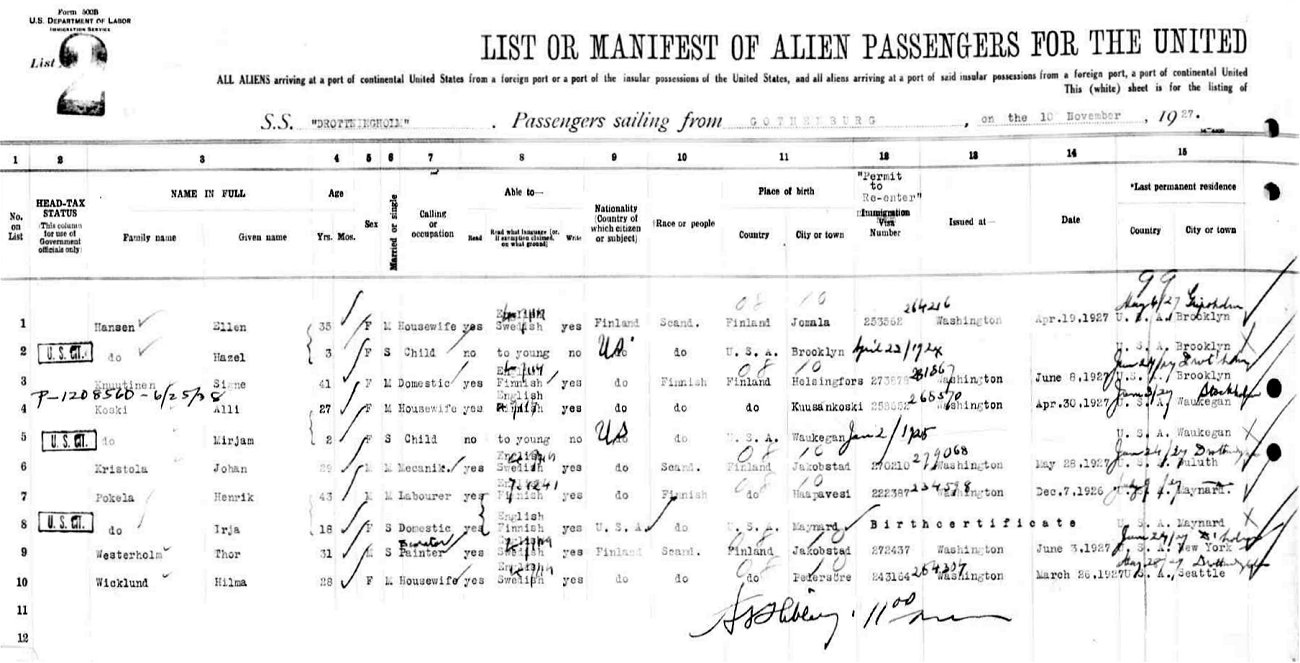 Form 500B
U.S. DEPARTMENT OF LABOR
IMMIGRATION SERVICE
List 2
LIST OR MANIFEST OF ALIEN PASSENGERS FOR THE UNITED
ALL ALIENS arriving at a port of continental United States from a foreign port or a port of the insular possessions of the United States, and all aliens arriving at a port of said insular possessions from a foreign port, a port of continental United
This (white) sheet is for the listing of
S.S. "DROTTNINGHOLM" . Passengers sailing from GOTHENBURG , on the 10 November , 1927.
1 2 3 4 5 6 7 8 9 10 11 12 13 14 15
No. on List
HEAD-TAX STATUS
(This column for use of Government officials only)
NAME IN FULL
Family name Given name
Age
Yrs. Mos.
Sex
Married or single
Calling or occupation
Able to—
Read Read what language (or, if exemption claimed, on what ground) Write
Nationality (Country of which citizen or subject)
Race or people
Place of birth
Country City or town
"Permit to Re-enter"
Immigration Visa Number
Issued at—
Date
*Last permanent residence
Country City or town
99
08 10 264216 May 6/27 Gripsholm
English
1 Hansen Ellen 35 F M Housewife yes Swedish yes Finland Scand. Finland Jomala 253562 Washington Apr.19,1927 U. S. A. Brooklyn
2 U. S. CIT. do Hazel 3 F S Child no to young no US do U. S. A. Brooklyn April 22/1924 U. S. A. Brooklyn
08 10
English
3 Knuutinen Signe 41 F M Domestic yes Finnish yes do Finnish Finland Helsingfors 273879 Washington June 8,1927 U. S. A. Brooklyn
P-1208560-6/25/38
English 265370 Stockholm
4 Koski Alli 27 F M Housewife yes Finnish yes do do do Kuusankoski Washington Apr.30,1927 U. S. A. Waukegan
5 U. S. CIT. do Mirjam 2 F S Child no to young no US do U. S. A. Waukegan Jan 2/1925 U. S. A. Waukegan
08 10 279068
English
6 Kristola Johan 29 M M Mecanik. yes Swedish yes do Scand. Finland Jakobstad 270210 Washington May 28,1927 U. S. A. Duluth
08 10
English
7 Pokela Henrik 43 M M Labourer yes Finnish yes do Finnish do Haapavesi 222387 Washington Dec.7,1926 U. S. A. Maynard.
English
8 U. S. CIT. do Irja 18 F S Domestic yes Finnish yes U. S. A. do U. S. A. Maynard Birthcertificate U. S. A. Maynard
08 10
English
9 Westerholm Thor 31 M S Painter yes Swedish yes Finland Scand. Finland Jakobstad 272437 Washington June 3,1927 U. S. A. New York
08 10
English
10 Wicklund Hilma 28 F M Housewife yes Swedish yes do do do Petersöre 243164 Washington March 26,1927 U. S. A. Seattle
11
12